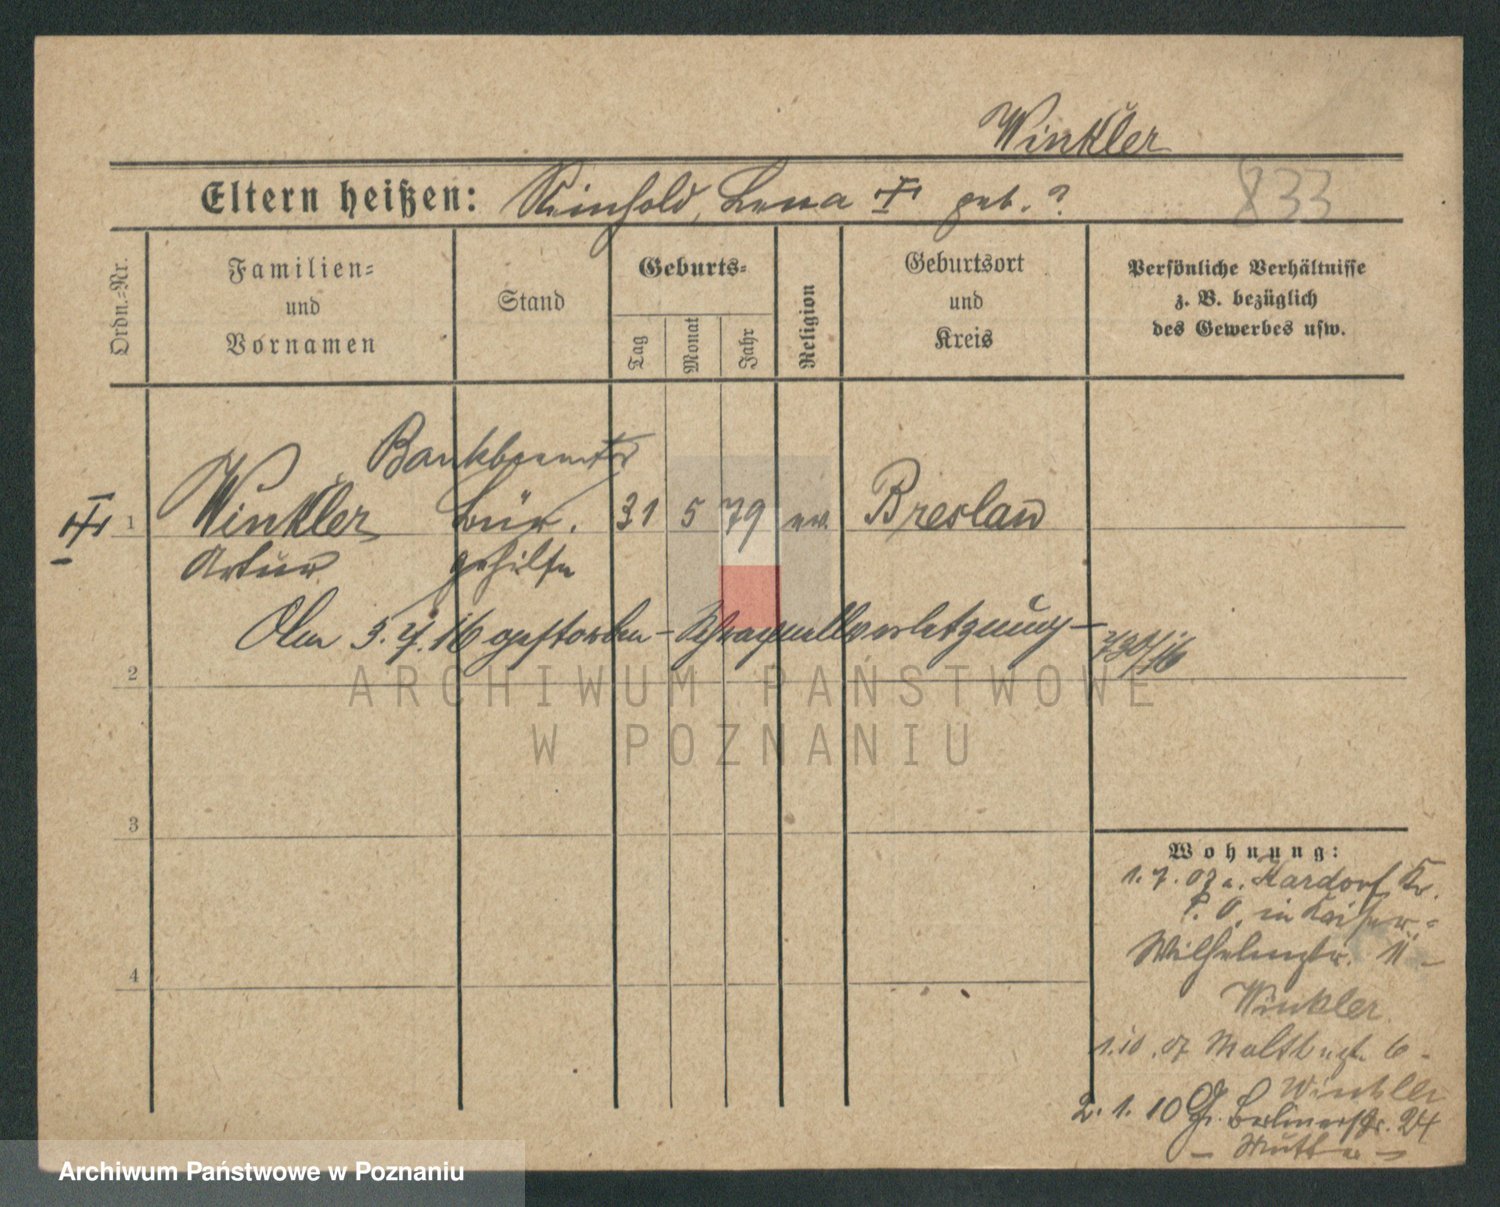 Winkler
Eltern heißen: Reinhold, Lena geb. ?
833
Ordn.=Nr.
Familien=
und
Vornamen
Stand
Geburts=
Tag
Monat
Jahr
Religion
Geburtsort
und
Kreis
Persönliche Verhältnisse
z. B. bezüglich
des Gewerbes usw.
Bankbeamter
1 Winkler Bür. 31 5 79 ev. Breslau
Artur gehilfe
Am 5.7.16 gestorben – Schrapnellverletzung –
2
3
4
Wohnung:
1.7.07 a. Kardorf, Kr.
P. O. in Kaiser=
Wilhelmstr. 11 –
Winkler
1.10.07 6 –
Winkler
2.1.10 Gr. Berlinerstr. 24
– Mutter –
ARCHIWUM PAŃSTWOWE
W POZNANIU
Archiwum Państwowe w Poznaniu